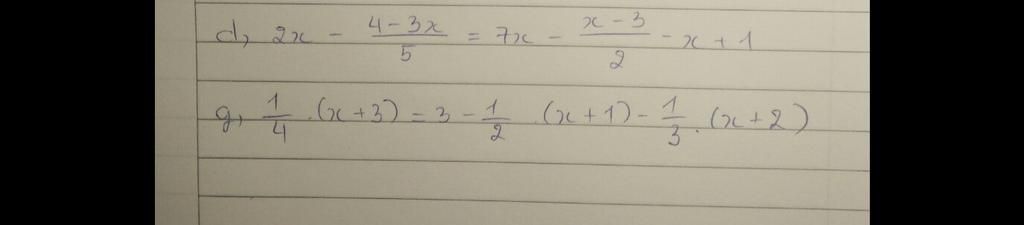 d, 2x - \frac{4-3x}{5} = 7x - \frac{x-3}{2} - x + 1
g, \frac{1}{4} . (x+3) = 3 - \frac{1}{2} . (x+1) - \frac{1}{3} . (x+2)